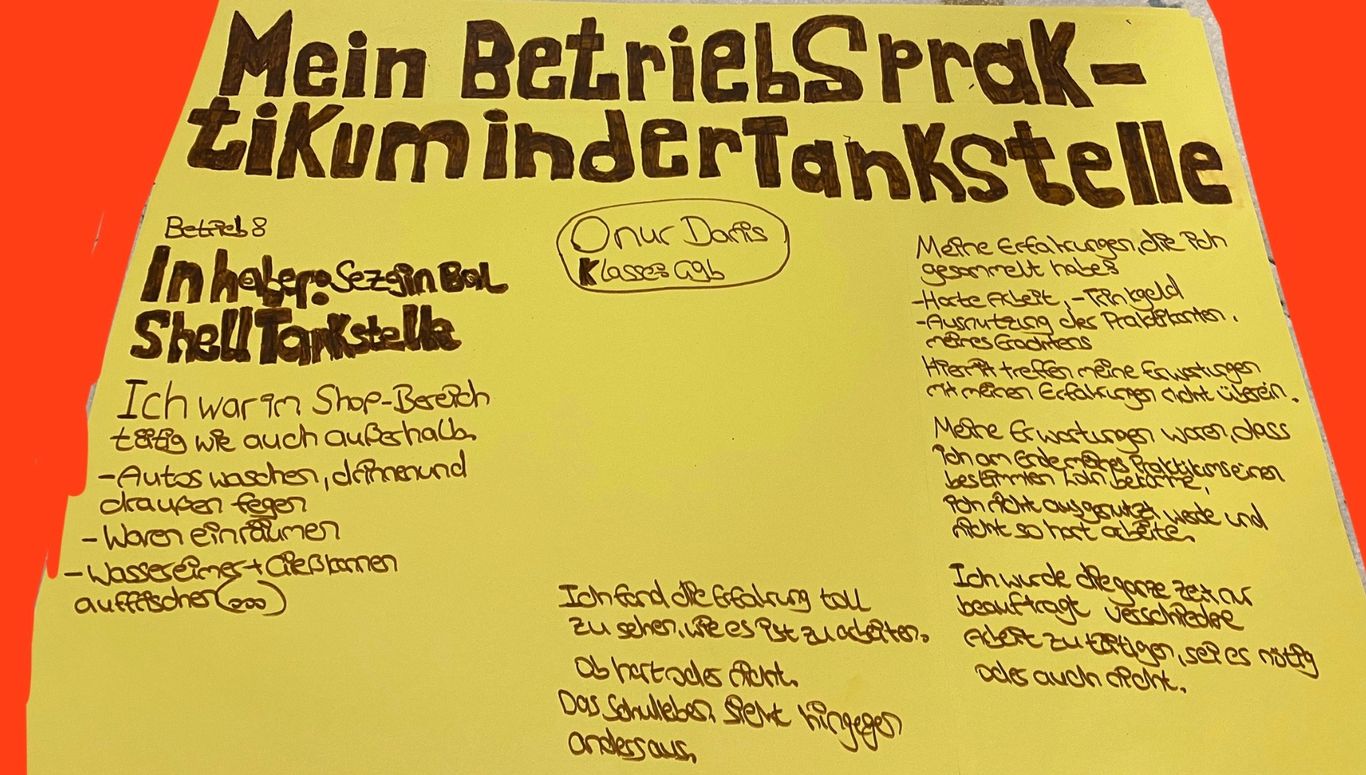 Mein Betriebsprak-
tikum in der Tankstelle
Betrieb:
Inhaber: Sezgin Bal
Shell Tankstelle
Ich war im Shop-Bereich
tätig wie auch außerhalb.
-Autos waschen, drinnen und
draußen fegen
-Waren einräumen
-Wassereimer + Gießkannen
auffrischen (...)
Onur Daris
Klasse: G9b
Ich fand die Erfahrung toll
zu sehen, wie es ist zu arbeiten.
Ob hart oder nicht.
Das Schulleben sieht hingegen
anders aus.
Meine Erfahrungen, die ich
gesammelt habe:
-Harte Arbeit, -Trinkgeld
-Ausnutzung des Praktikanten,
meines Erachtens
Hiermit treffen meine Erwartungen
mit meinen Erfahrungen nicht überein.
Meine Erwartungen waren, dass
ich am Ende meines Praktikums einen
bestimmten Lohn bekäme,
ich nicht ausgenutzt werde und
nicht so hart arbeite.
Ich wurde die ganze Zeit nur
beauftragt verschiedene
Arbeit zu tätigen, sei es nötig
oder auch nicht.